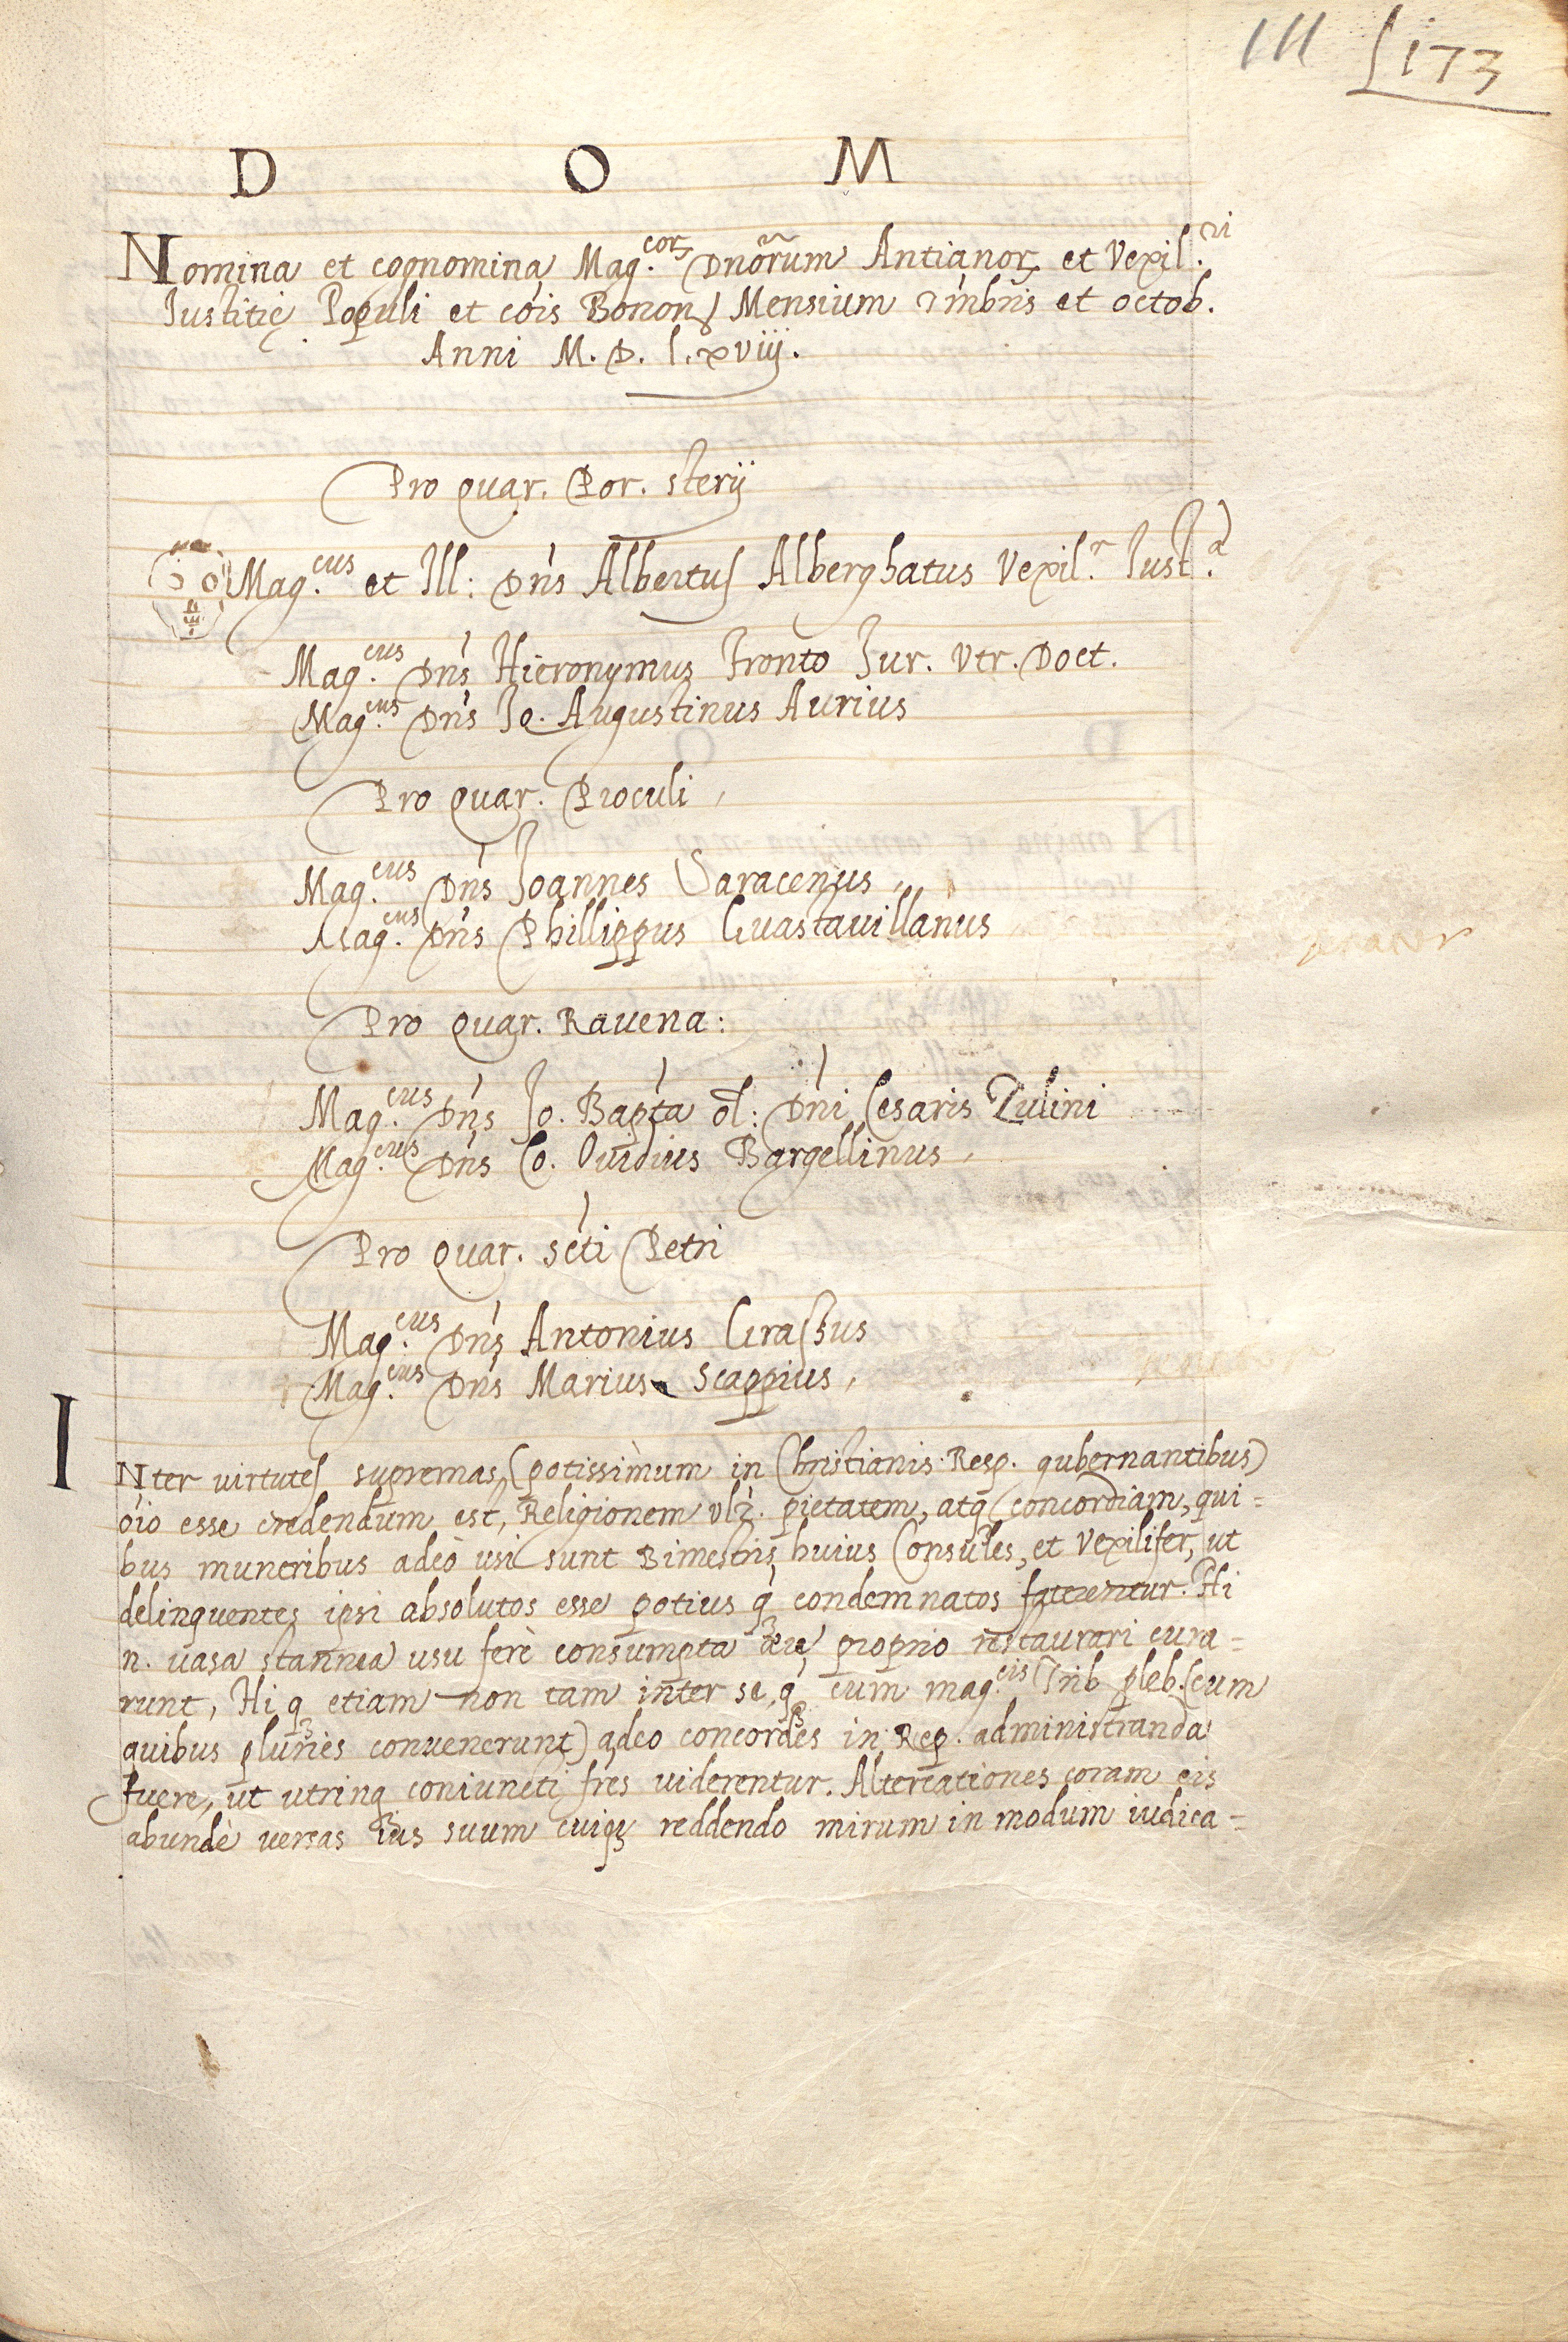 111 173
D O M
Nomina et cognomina Mag.corꝝ Dnõrum Antianorꝝ et Vexil.ri
Iustitię Populi et cois Bonon Mensium 7mbris et octob.
Anni M. D. lxviij.
Pro quar. Por. sterij
Mag.cus et Ill: Dns Albertus Alberghatus Vexil.r Iust.a
Mag.cus Dns Hieronymus Fronto Iur. Vtr. Doct.
Mag.cus Dns Io. Augustinus Aurius
Pro quar. Proculi
Mag.cus Dns Joannes Saracenus
Mag.cus Dns Phillippus Guastauillanus
Pro quar. Rauena:
Mag.cus Dns Jo. Bapta ol: Dni Cesaris
Mag.cus Dns Co. Ouidius Bargellinus
Pro quar. scti Petri
Mag.cus Dns Antonius Grassus
Mag.cus Dns Marius Scappius
INter virtutes supremas, (potissimum in Christianis Resp. gubernantibus)
oio esse credendum est, Religionem vlz. pietatem, atq concordiam, qui=
bus muneribus adeò usi sunt Bimestris huius Consules, et Vexilifer, ut
delinquentes ipsi absolutos esse potius q̃ condemnatos faterentur. Hi
n. uasa stannea usu ferè consumpta ęre proprio restaurari cura=
runt, Hi q etiam non tam inter se, q̃ cum mag.cis Trib pleb. (cum
quibus pluries conuenerunt) adeo concordes in Rep. administranda
fuere, ut utrinq coniuncti fres uiderentur. Altercationes coram eis
abundè uersas ius suum cuiqꝫ reddendo mirum in modum iudica=